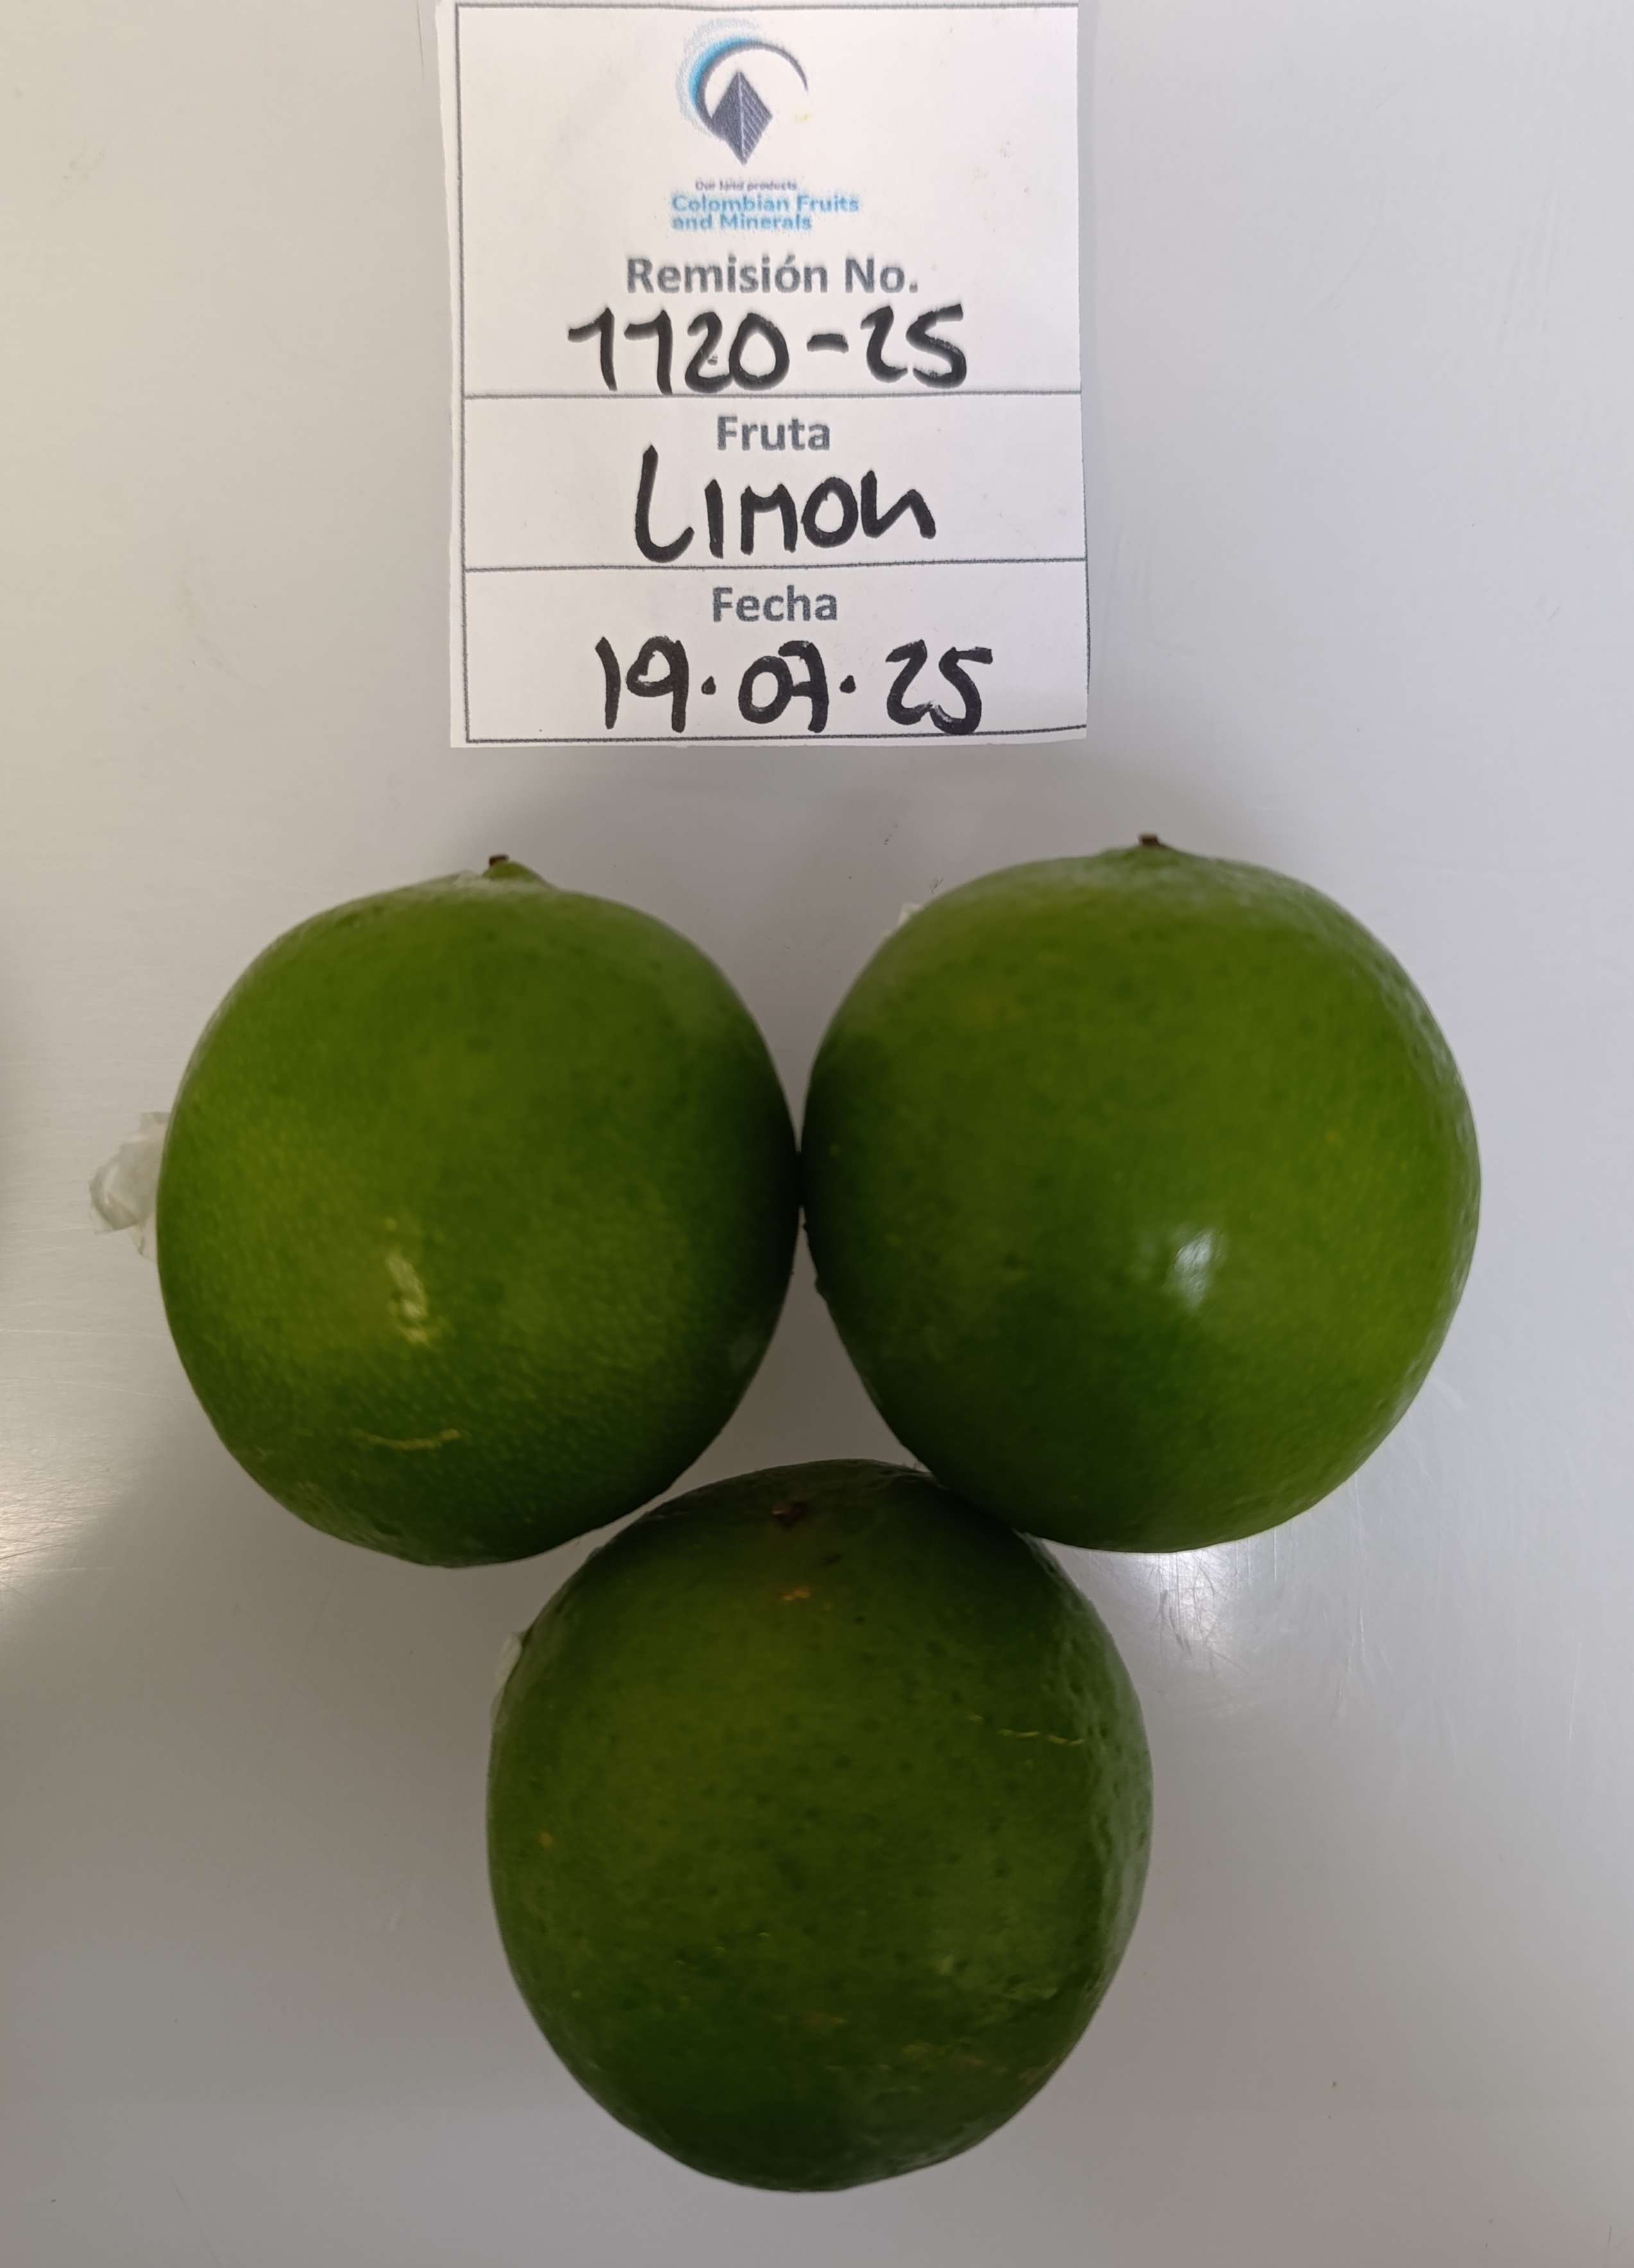 Our land products
Colombian Fruits
and Minerals
Remisión No.
1120-25
Fruta
Limon
Fecha
19.07.25